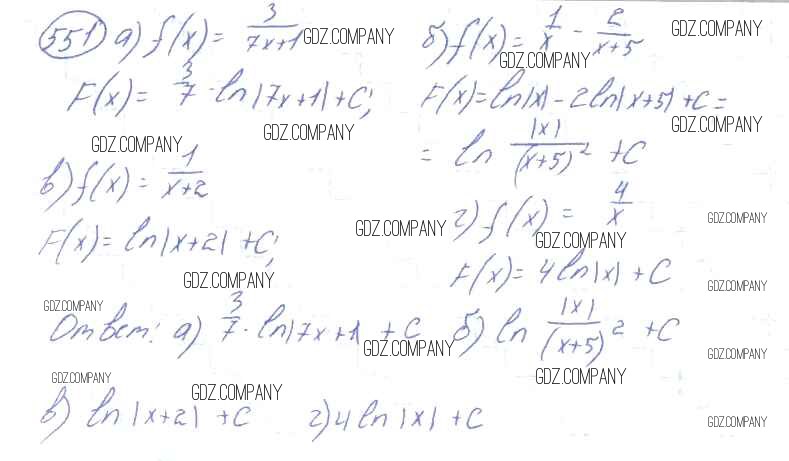 551 а) f(x) = 3/(7x+1) GDZ.COMPANY
F(x) = 3/7 · ln|7x+1| + C;
GDZ.COMPANY
GDZ.COMPANY
в) f(x) = 1/(x+2)
F(x) = ln|x+2| + C;
GDZ.COMPANY
б) f(x) = 1/x - 2/(x+5) GDZ.COMPANY
GDZ.COMPANY
F(x) = ln|x| - 2ln|x+5| + C =
GDZ.COMPANY
= ln |x|/(x+5)² + C
г) f(x) = 4/x
GDZ.COMPANY
GDZ.COMPANY
GDZ.COMPANY
F(x) = 4ln|x| + C
GDZ.COMPANY
GDZ.COMPANY
Ответ: а) 3/7 · ln|7x+1| + C б) ln |x|/(x+5)² + C
GDZ.COMPANY
GDZ.COMPANY
GDZ.COMPANY
GDZ.COMPANY
GDZ.COMPANY
в) ln|x+2| + C г) 4 ln|x| + C
GDZ.COMPANY